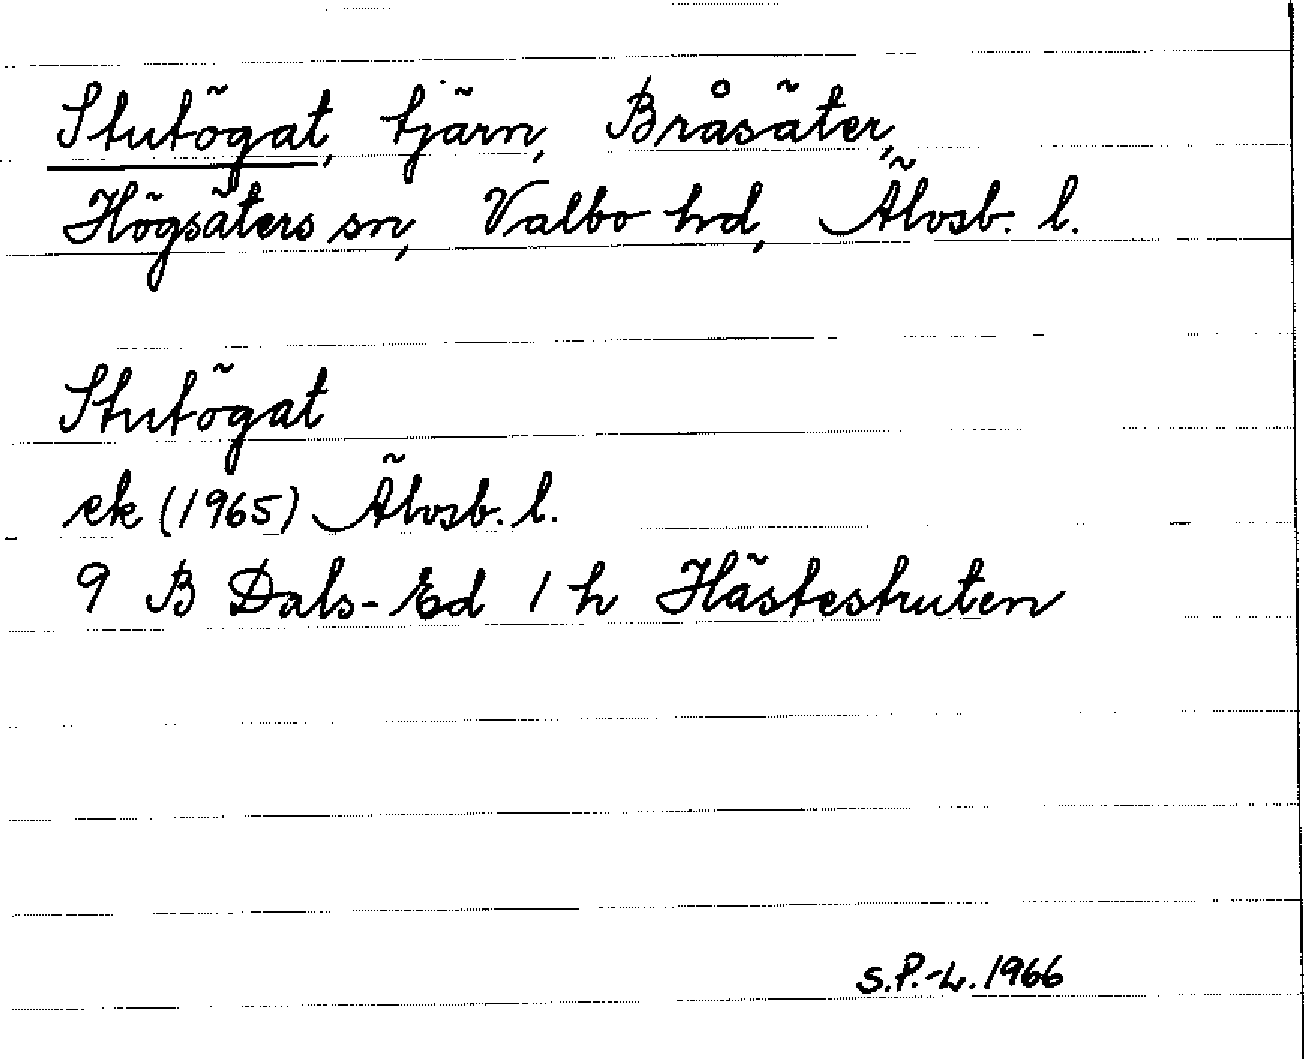 Stutögat, tjärn, Bråsäter,
Högsäters sn, Valbo hd, Älvsb. l.
Stutögat
ek (1965) Älvsb. l.
9 B Dals-Ed 1 h Hästestuten
S.P.-L. 1966